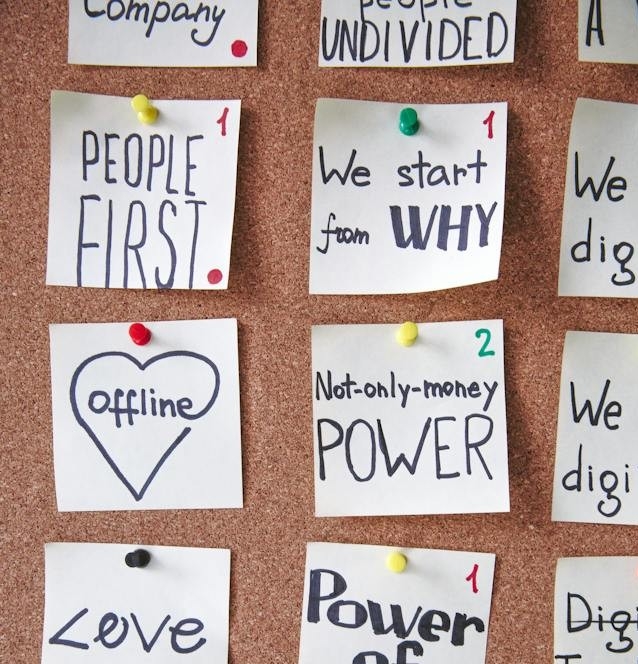 Company
people
UNDIVIDED
A
1
PEOPLE
FIRST.
1
We start
from WHY
We
dig
offline
2
Not-only-money
POWER
We
digi
Love
1
Power
of
Digi